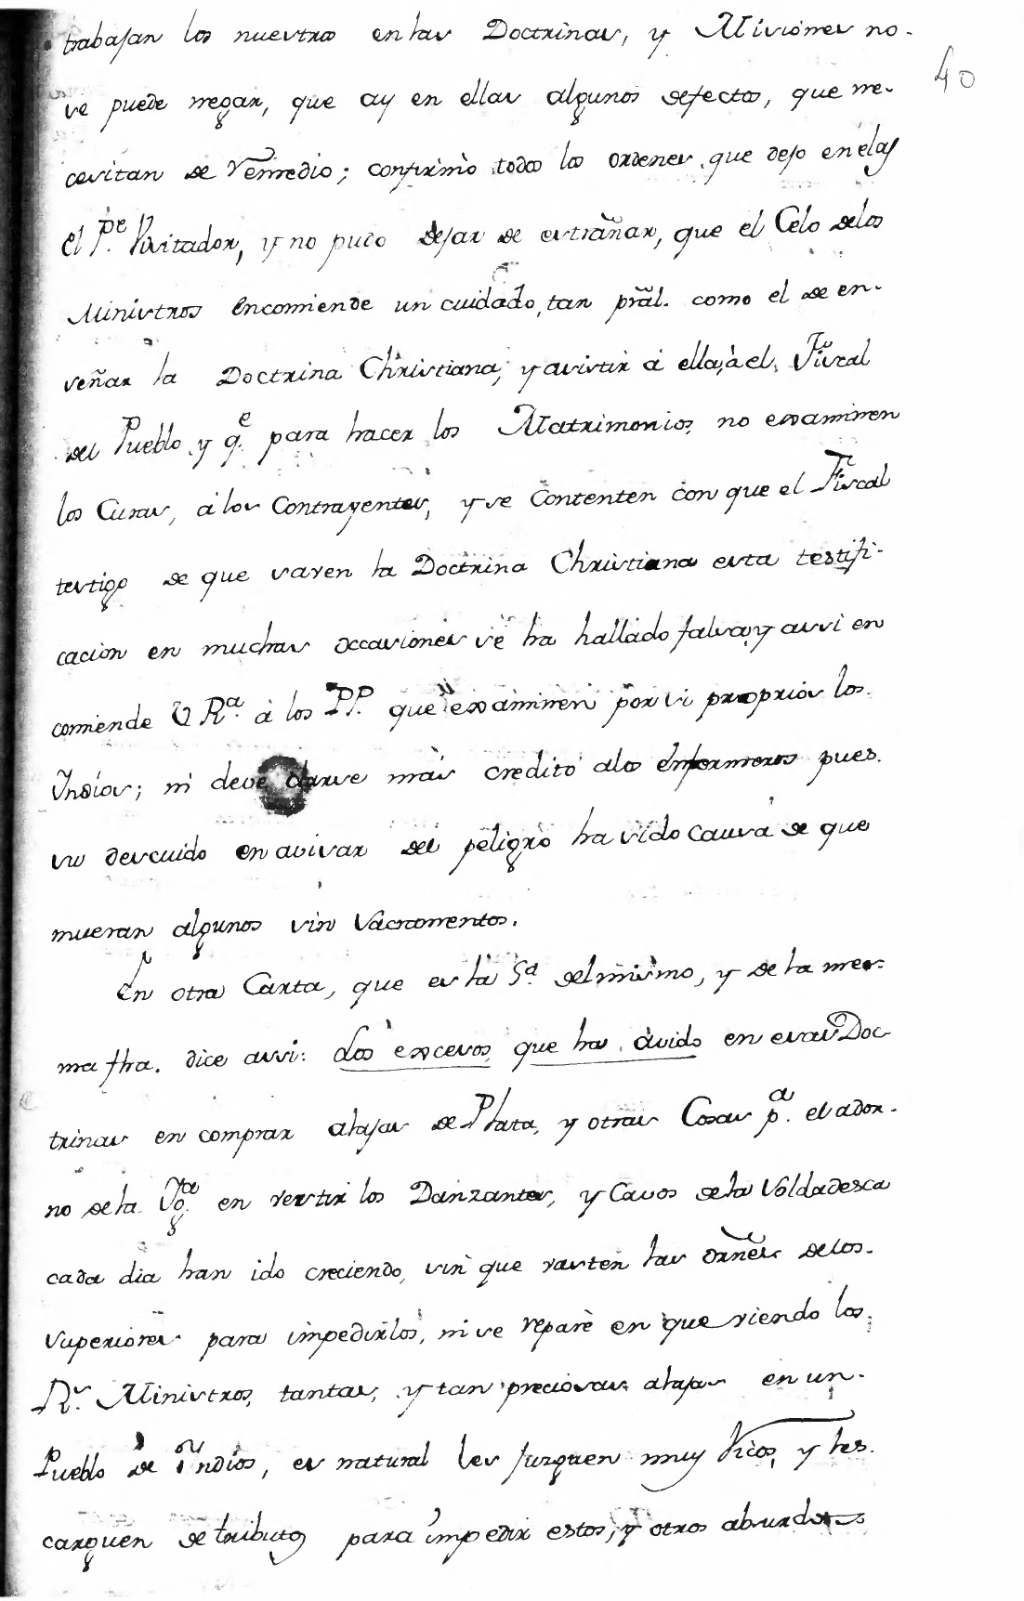 trabajan los nuestros en las Doctrinas, y Misiones no-
40
se puede negar, que ay en ellas algunos defectos, que ne-
cesitan de remedio; confirmo todos los ordenes que dejo en elas
el P.e Visitador, y no puedo dejar de estrañar, que el Celo delos
Ministros encomiende un cuidado, tan prãl. como el de en-
señar la Doctrina Christiana, y asistir á ella, à el Fiscal
del Pueblo y q.e para hacer los Matrimonios, no examinen
los Curas, á los Contrayentes, y se Contenten con que el Fiscal
testigo de que saven la Doctrina Christiana esta testifi-
cacion en muchas occasiones se ha hallado falsa, y assi en
comiende V R.a á los PP. que examinen por si proprios los
Yndios; ni deve darse mas credito alos enfermeros pues
su descuido en avisar del peligro ha sido causa de que
mueran algunos sin Sacramentos.
En otra Carta, que es la 5.a del mismo, y de la mes-
ma fha. dice assi: Los excesos que ha avido en esas Doc
trinas en comprar alajas de Plata, y otras Cosas p.a el ador-
no de la Yg.a en vestir los Danzantes, y Cavos dela Soldadesca
cada dia han ido creciendo, sin que vasten las orñes delos
Superiores para impedirlos, ni se repare en que viendo los
R.s Ministros, tantas, y tan preciosas alajas en un
Pueblo de Yndios, es natural les juzguen muy Ricos, y les
carguen de tributos para impedir estos, y otros absurdos